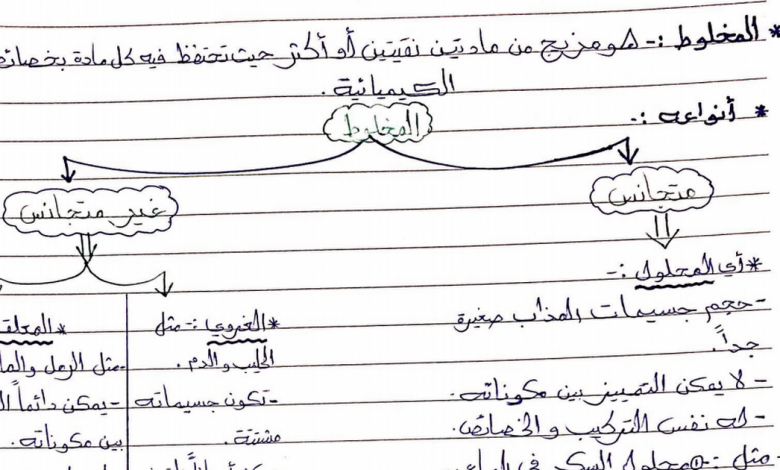 * المخلوط :- هو مزيج من مادتين نقيتين أو أكثر حيث تحتفظ فيه كل مادة
الكيميائية .
* أنواعه :-
المخلوط
متجانس
غير متجانس
* أي المحلول :-
- حجم جسيمات المذاب صغيرة
جداً.
- لا يمكن التمييز بين مكوناته.
- له نفس التركيب والخصائص.
- مثل :- ① محلول السكر في
* الغروي :- مثل
الحليب والدم .
- تكون جسيماته
مشتتة.
- مثل الرمل
- يمكن دائماً
بين مكوناته.